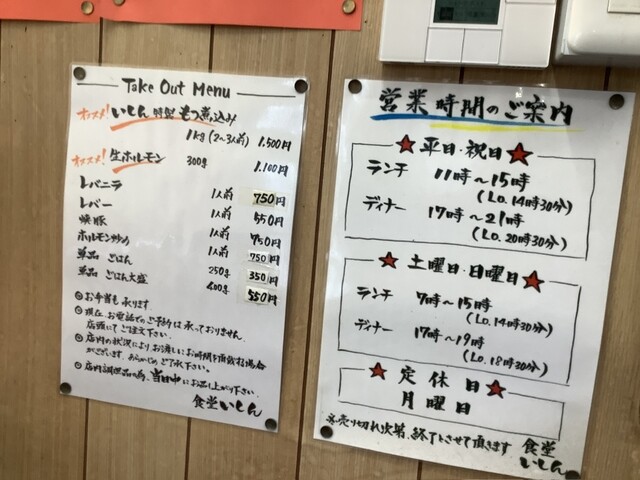 Take Out Menu
オススメ! いしん 特製 もつ煮込み
1kg (2〜3人前) 1,500円
オススメ! 生ホルモン 300g 1,100円
レバニラ 1人前 750円
レバー 1人前 550円
焼豚 1人前 750円
ホルモン炒め 1人前 750円
単品 ごはん 250g 350円
単品 ごはん大盛 400g 550円
◎お弁当も承ります
◎現在、お電話でのご予約は承っておりません。
店頭にてご注文下さい。
◎店内の状況によりお渡しにお時間を頂戴する場合
がございます。あらかじめご了承下さい。
◎店内調理品の為、当日中にお召し上がり下さい。
食堂いしん
営業時間のご案内
★平日・祝日★
ランチ 11時〜15時
(L.o. 14時30分)
ディナー 17時〜21時
(L.o. 20時30分)
★土曜日・日曜日★
ランチ 7時〜15時
(L.o. 14時30分)
ディナー 17時〜19時
(L.o. 18時30分)
★定休日★
月曜日
※売り切れ次第、終了とさせて頂きます
食堂
いしん